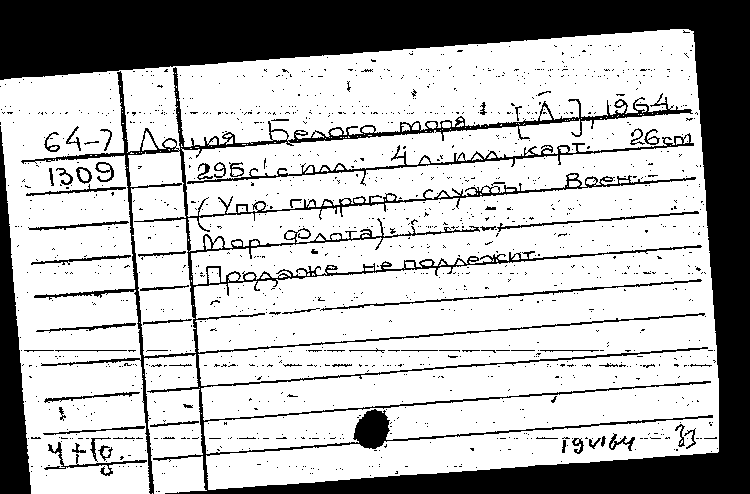 64-7 Лоция Белого моря. [Л], 1964.
1309 295с. с илл.; 4 л. илл., карт. 26cm
(Упр. гидрогр. службы Воен.-
Мор. Флота).
Продаже не подлежит.
4+10.